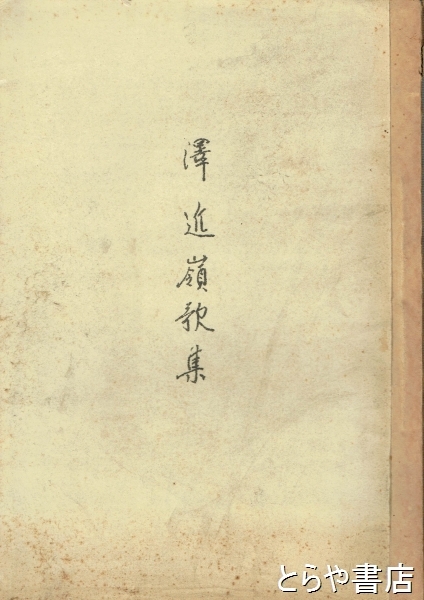 澤 進嶺歌集
とらや書店